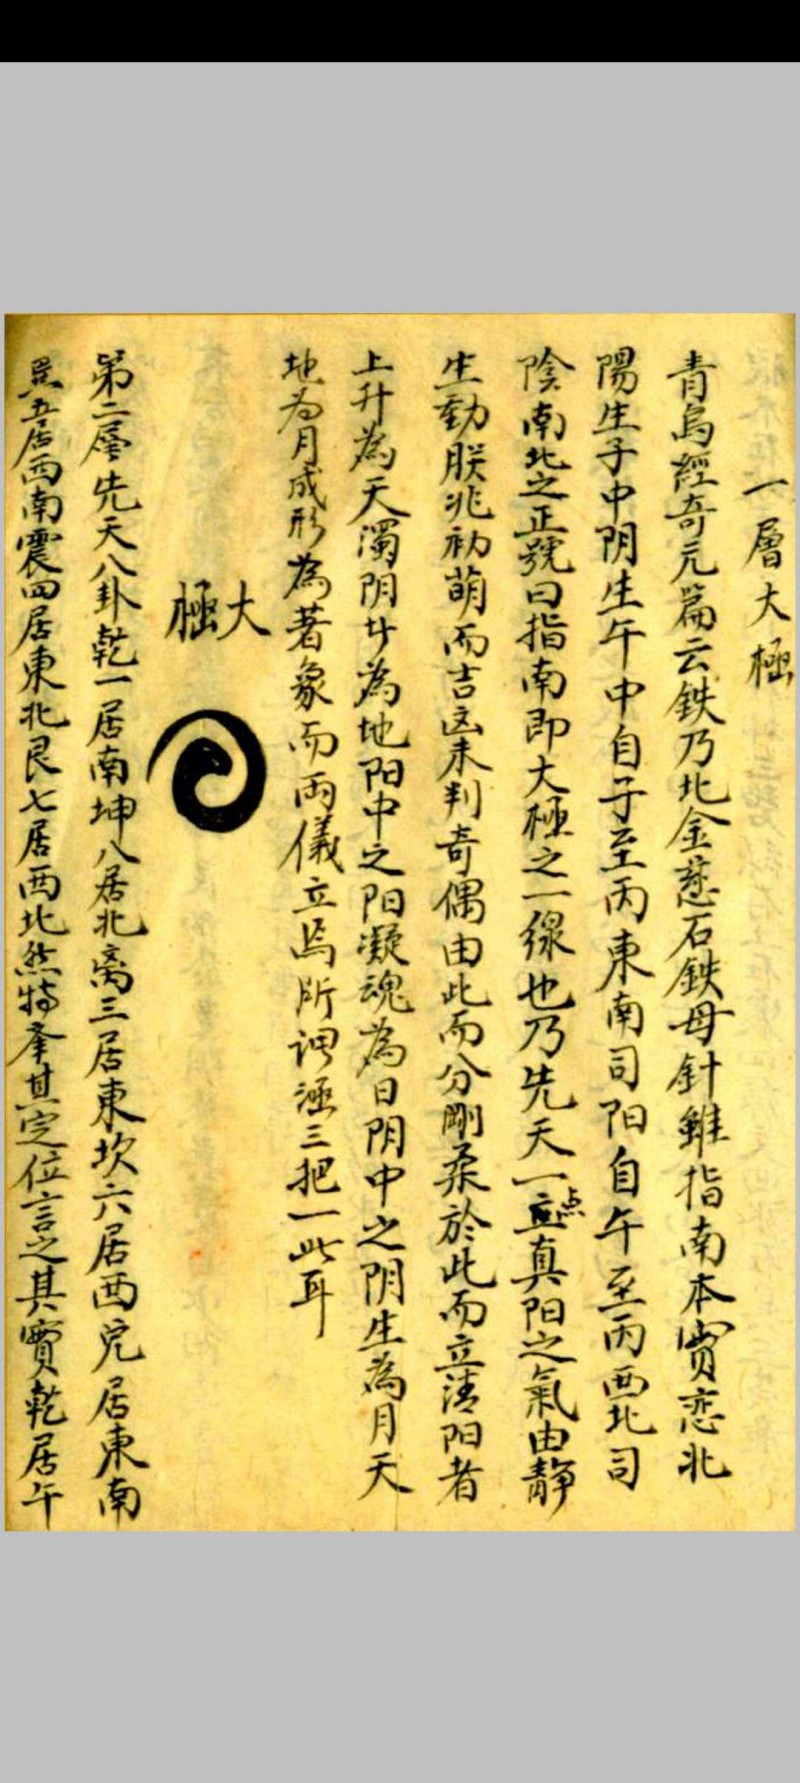 一層大極
青烏經奇元篇云鉄乃北金慈石鉄母針雖指南本實恋北
陽生子中阴生午中自子至丙東南司阳自午至丙西北司
陰南北之正號曰指南即大極之一線也乃先天一点真阳之氣由静
生動朕兆初萌而吉凶未判奇偶由此而分剛柔於此而立清阳者
上升為天濁阴廾為地阳中之阳凝魂為日阴中之阴生為月天
地为月成形為著象而両儀立焉所谓極三把一此耳
大極
第二層先天八卦乾一居南坤八居北离三居東坎六居西兌居東南
巽五居西南震四居東北艮七居西北然特峯其定位言之其實乾居午